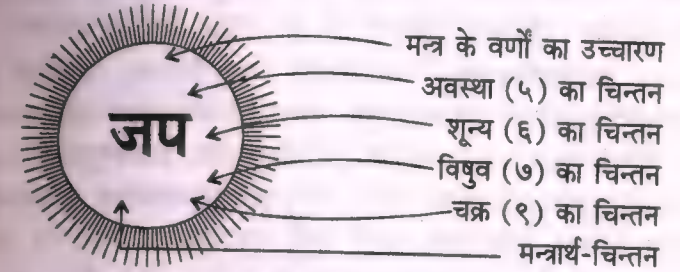 मन्त्र के वर्णों का उच्चारण
अवस्था (५) का चिन्तन
जप
शून्य (६) का चिन्तन
विषुव (७) का चिन्तन
चक्र (९) का चिन्तन
मन्त्रार्थ-चिन्तन